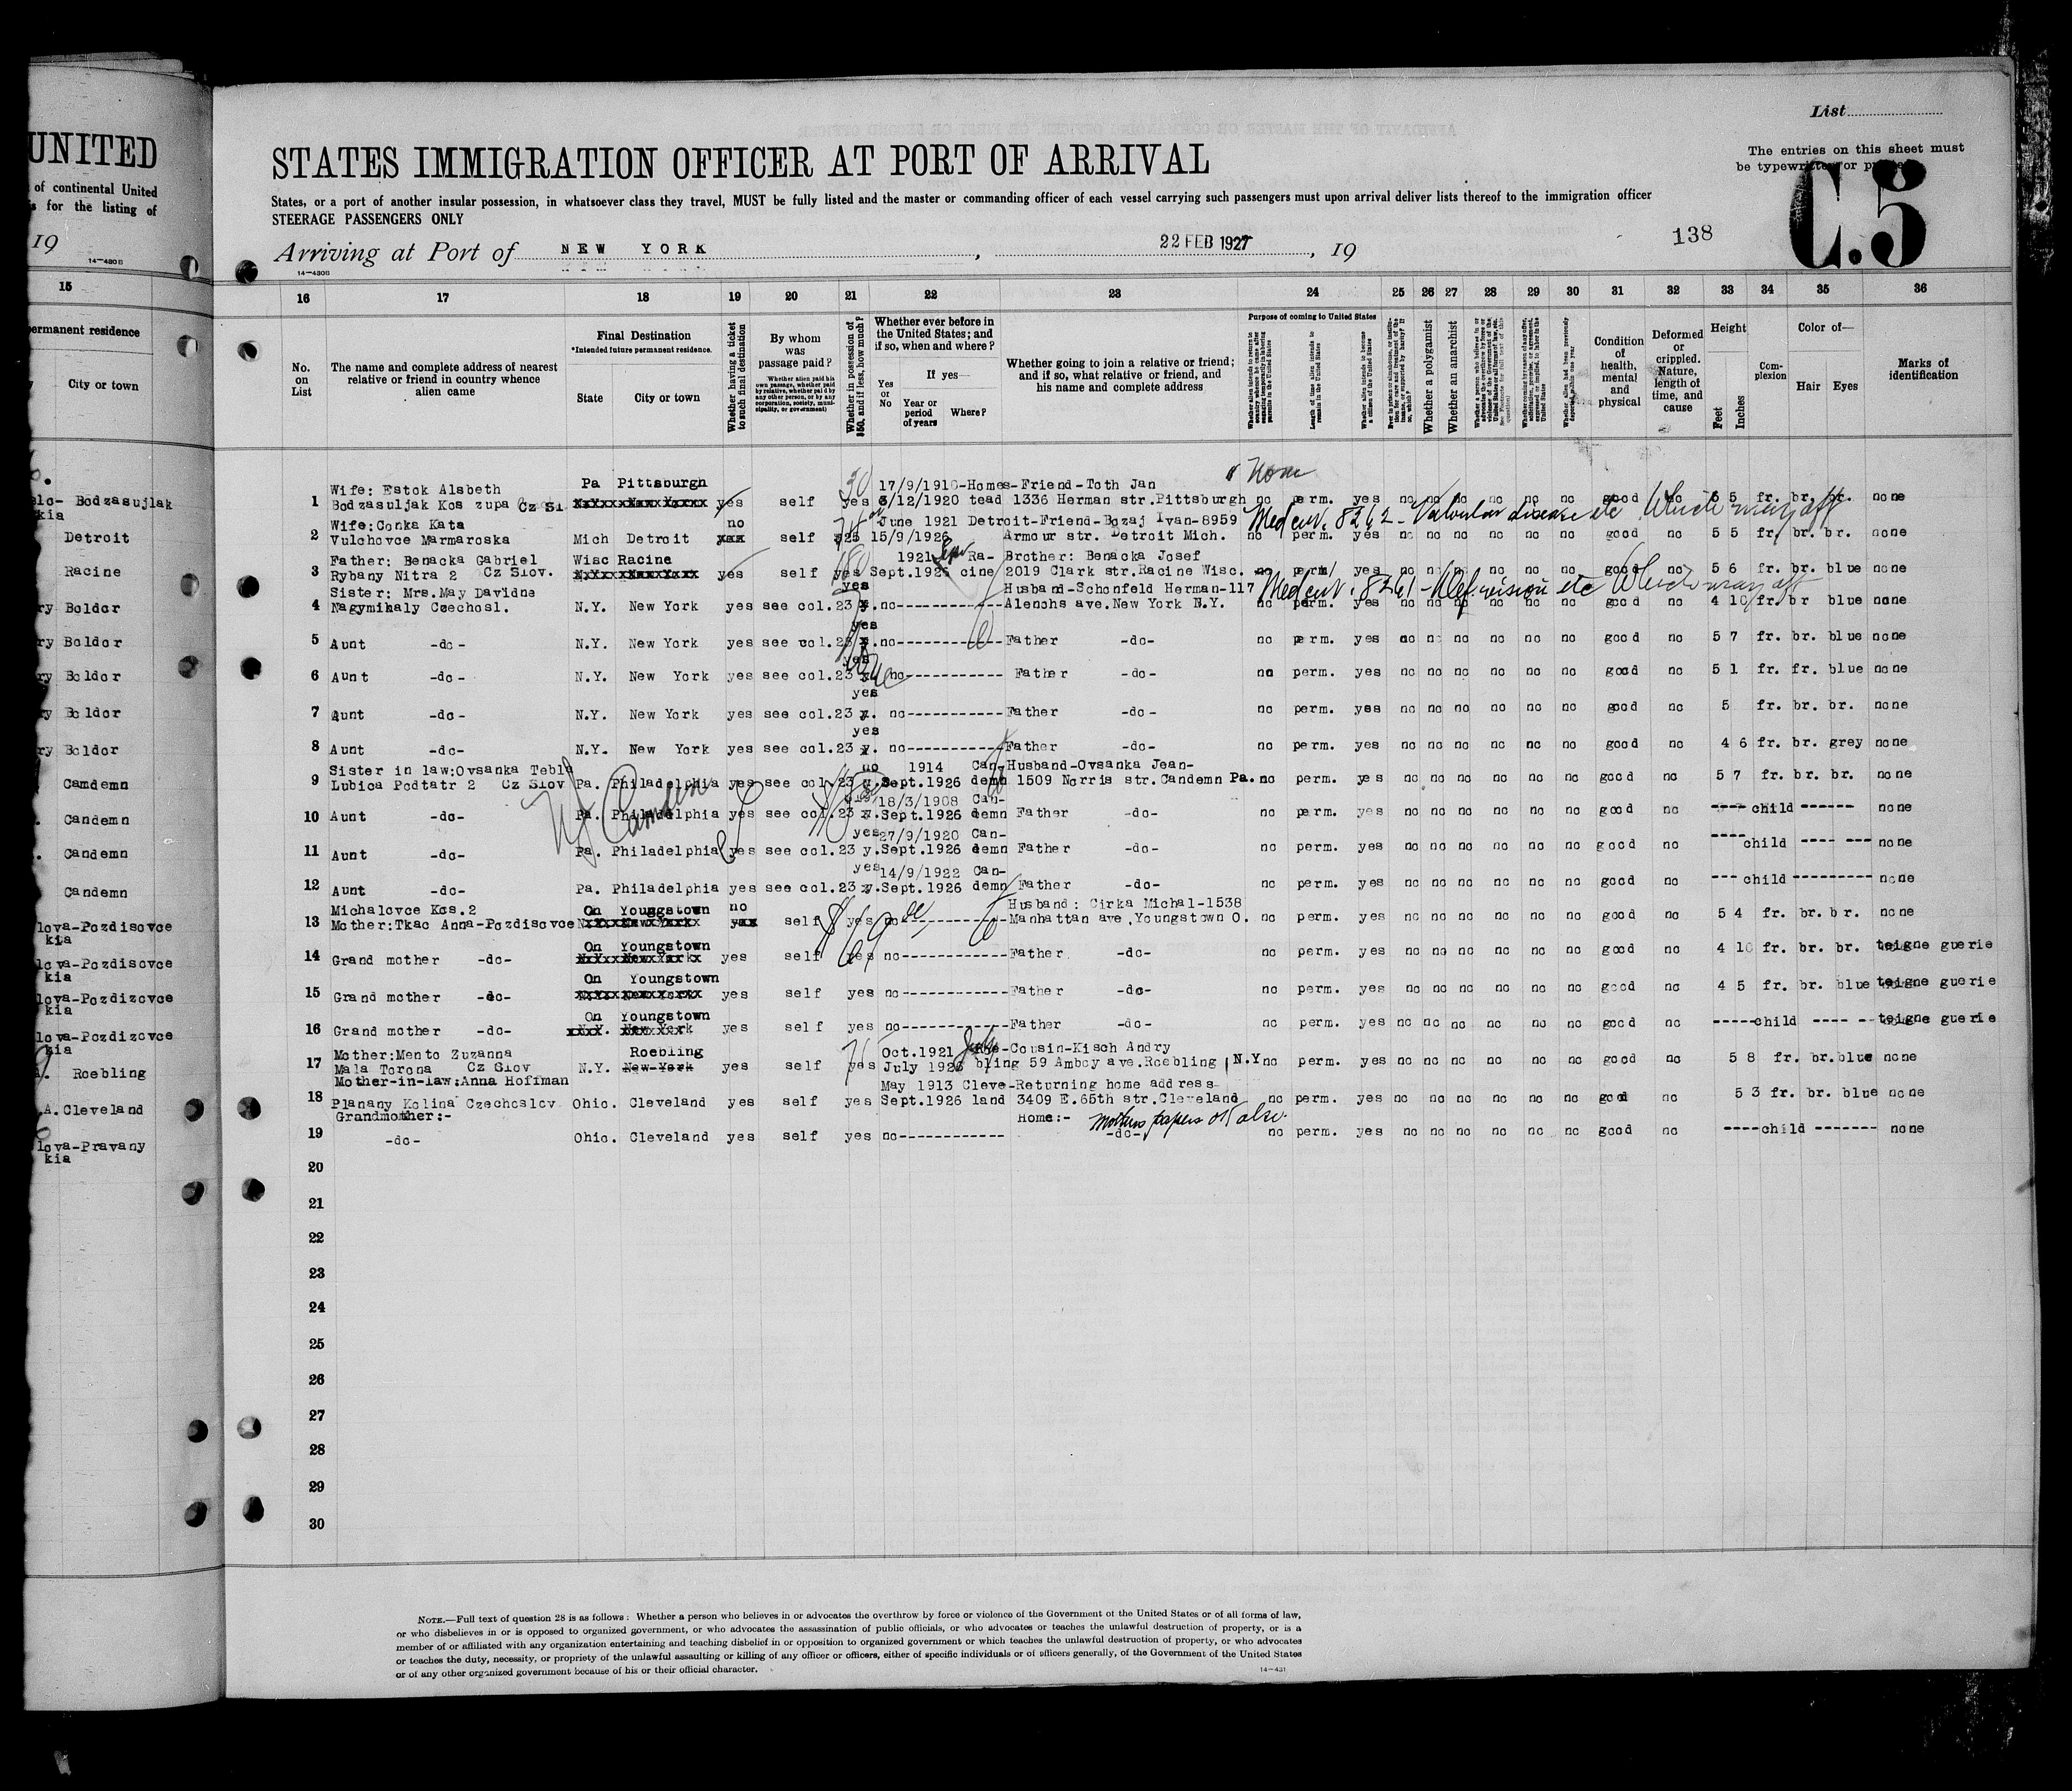 List
The entries on this sheet must
be typewritten or
C.5
138
UNITED
STATES IMMIGRATION OFFICER AT PORT OF ARRIVAL
of continental United
for the listing of
States, or a port of another insular possession, in whatsoever class they travel, MUST be fully listed and the master or commanding officer of each vessel carrying such passengers must upon arrival deliver lists thereof to the immigration officer
STEERAGE PASSENGERS ONLY
19
14-430B
Arriving at Port of NEW YORK, 22 FEB 1927, 19
14-430B
15 16 17 18 19 20 21 22 23 24 25 26 27 28 29 30 31 32 33 34 35 36
permanent residence
City or town
No. on List
The name and complete address of nearest relative or friend in country whence alien came
Final Destination
*Intended future permanent residence.
State City or town
Whether having a ticket to such final destination
By whom was passage paid?
Whether in possession of $50, and if less, how much?
Whether ever before in the United States; and if so, when and where?
Yes or No
If yes—
Year or period of years
Where?
Whether going to join a relative or friend; and if so, what relative or friend, and his name and complete address
Purpose of coming to United States
Length of time alien intends to remain in the United States
Whether a polygamist
Whether an anarchist
Condition of health, mental and physical
Deformed or crippled. Nature, length of time, and cause
Height
Feet Inches
Complexion
Color of—
Hair Eyes
Marks of identification
None
Wife: Estok Alsbeth Pa Pittsburgh 30 17/9/1910-Homes-Friend-Toth Jan
Bodzasujlak
1 Bodzasuljak Kos zupa Cz Sl yes self yes 3/12/1920 tead 1336 Herman str.Pittsburgh no perm. yes no no no no no no good no 5 5 fr. br. br. none
kia
Wife:Conka Kata no June 1921 Detroit-Friend-Bozaj Ivan-8959 Med cert. 8262 - Valvular disease etc Which may aff
Detroit
2 Vulchovce Marmaroska Mich Detroit self $25 15/9/1926 Armour str. Detroit Mich. no perm. yes no no no no no no good no 5 5 fr. br. br. none
Father: Benacka Gabriel Wisc Racine 1921 Ra- Brother: Benacka Josef
Racine
3 Rybany Nitra 2 Cz Slov. yes self yes Sept.1926 cine 2019 Clark str.Racine Wisc. no perm/ yes no no no no no no good no 5 6 fr. br. blue none
Sister: Mrs.May Davidne yes Husband-Schonfeld Herman-117 Med cert. 8261 - Def. vision etc Which may aff
Boldor
4 Nagymihaly Czechosl. N.Y. New York yes see col.23 no Alenchs ave.New York N.Y. no perm. yes no no no no no no good no 4 10 fr. br blue none
yes
Boldor
5 Aunt -do- N.Y. New York yes see col.23 no Father -do- no perm. yes no no no no no no good no 5 7 fr. br. blue none
yes
Boldor
6 Aunt -do- N.Y. New York yes see col.23 no Father -do- no perm. yes no no no no no no good no 5 1 fr. fr. blue none
yes
Boldor
7 Aunt -do- N.Y. New York yes see col.23 no Father -do- no perm. yes no no no no no no good no 5 fr. br. br. none
yes
Boldor
8 Aunt -do- N.Y. New York yes see col.23 no Father -do- no perm. yes no no no no no no good no 4 6 fr. br. grey none
Sister in law:Ovsanka Tebla no 1914 Can-Husband-Ovsanka Jean-
Camdemn
9 Lubica Podtatr 2 Cz Slov Pa. Philadelphia yes see col.23 Sept.1926 demn 1509 Norris str.Candemn Pa. no perm. yes no no no no no no good no 5 7 fr. br. br. none
NJ Camden
18/3/1908 Can-
Candemn
10 Aunt -do- Pa. Philadelphia yes see col.23 Sept.1926 demn Father -do- no perm. yes no no no no no no good no child none
yes 27/9/1920 Can-
Candemn
11 Aunt -do- Pa. Philadelphia yes see col.23 y.Sept.1926 demn Father -do- no perm. yes no no no no no no good no child none
yes 14/9/1922 Can-
Candemn
12 Aunt -do- Pa. Philadelphia yes see col.23 y.Sept.1926 demn Father -do- no perm. yes no no no no no no good no child none
Michalovce Kos.2 On Youngstown no Husband: Cirka Michal-1538
lova-Pozdisovce
kia
13 Mother:Tkac Anna-Pozdisovce self yes no Manhattan ave.Youngstown O. no perm. yes no no no no no no good no 5 4 fr. br. br. none
On Youngstown
lova-Pozdisovce
kia
14 Grand mother -do- yes self yes no Father -do- no perm. yes no no no no no no good no 4 10 fr. br. br. teigne guerie
On Youngstown
lova-Pozdizovce
kia
15 Grand mother -do- yes self yes no Father -do- no perm. yes no no no no no no good no 4 5 fr. br. blue teigne guerie
On Youngstown
lova-Pozdizovce
kia
16 Grand mother -do- yes self yes no Father -do- no perm. yes no no no no no no good no child teigne guerie
Mother:Mento Zuzanna Roebling Oct.1921 Roe-Cousin-Kisch Andry
Roebling
17 Mala Torona Cz Slov N.Y. New-York yes self yes July 1926 bling 59 Amboy ave.Roebling N.Y no perm. yes no no no no no no good no 5 8 fr. br. blue none
Mother-in-law:Anna Hoffman May 1913 Cleve-Returning home address
.A.Cleveland
18 Planany Kolina Czechoslov. Ohio. Cleveland yes self yes Sept.1926 land 3409 E.65th str.Cleveland no perm. yes no no no no no no good no 5 3 fr. br. blue none
Grandmother:- Home:- Mothers papers OK also.
lova-Pravany
kia
19 -do- Ohio. Cleveland yes self yes no -do- no perm. yes no no no no no no good no child none
20
21
22
23
24
25
26
27
28
29
30
NOTE.—Full text of question 28 is as follows: Whether a person who believes in or advocates the overthrow by force or violence of the Government of the United States or of all forms of law,
or who disbelieves in or is opposed to organized government, or who advocates the assassination of public officials, or who advocates or teaches the unlawful destruction of property, or is a
member of or affiliated with any organization entertaining and teaching disbelief in or opposition to organized government or which teaches the unlawful destruction of property, or who advocates
or teaches the duty, necessity, or propriety of the unlawful assaulting or killing of any officer or officers, either of specific individuals or of officers generally, of the Government of the United States
or of any other organized government because of his or their official character.
14-431